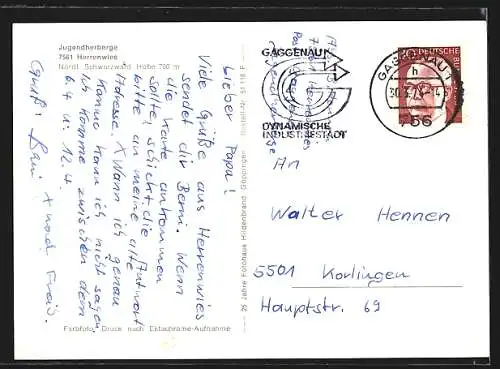 Jugendherberge
7561 Herrenwies
Nördl. Schwarzwald Höhe 760 m
Lieber Papa!
Viele Grüße aus Herrenwies
sendet dir Berni. Wenn
die Karte ankommen
sollte, schickt die Antwort
bitte an meine alte
Adresse. X Wann ich genau
komme kann ich nicht sagen.
Ich komme zwischen dem
6.4 u. 12.4.
Gruß!
X nach
Farbfoto Druck nach Ektachrome-Aufnahme
25 Jahre Fotohaus Hildenbrand Göppingen
GAGGENAU
DYNAMISCHE
INDUSTRIESTADT
GAGGENAU
h
756
DEUTSCHE BU
An
Walter Hennen
5501 Korlingen
Hauptstr. 69